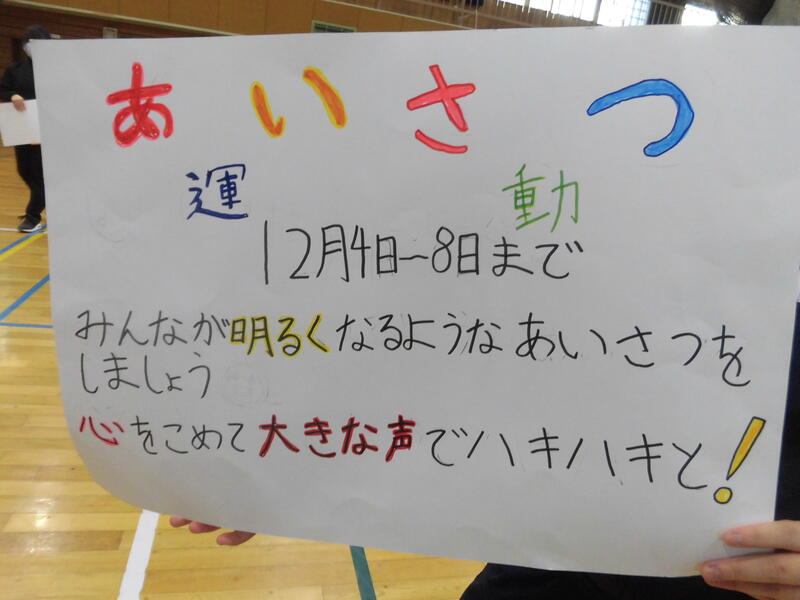 あいさつ
運動
12月4日~8日まで
みんなが明るくなるようなあいさつを
しましょう
心をこめて大きな声でハキハキと!